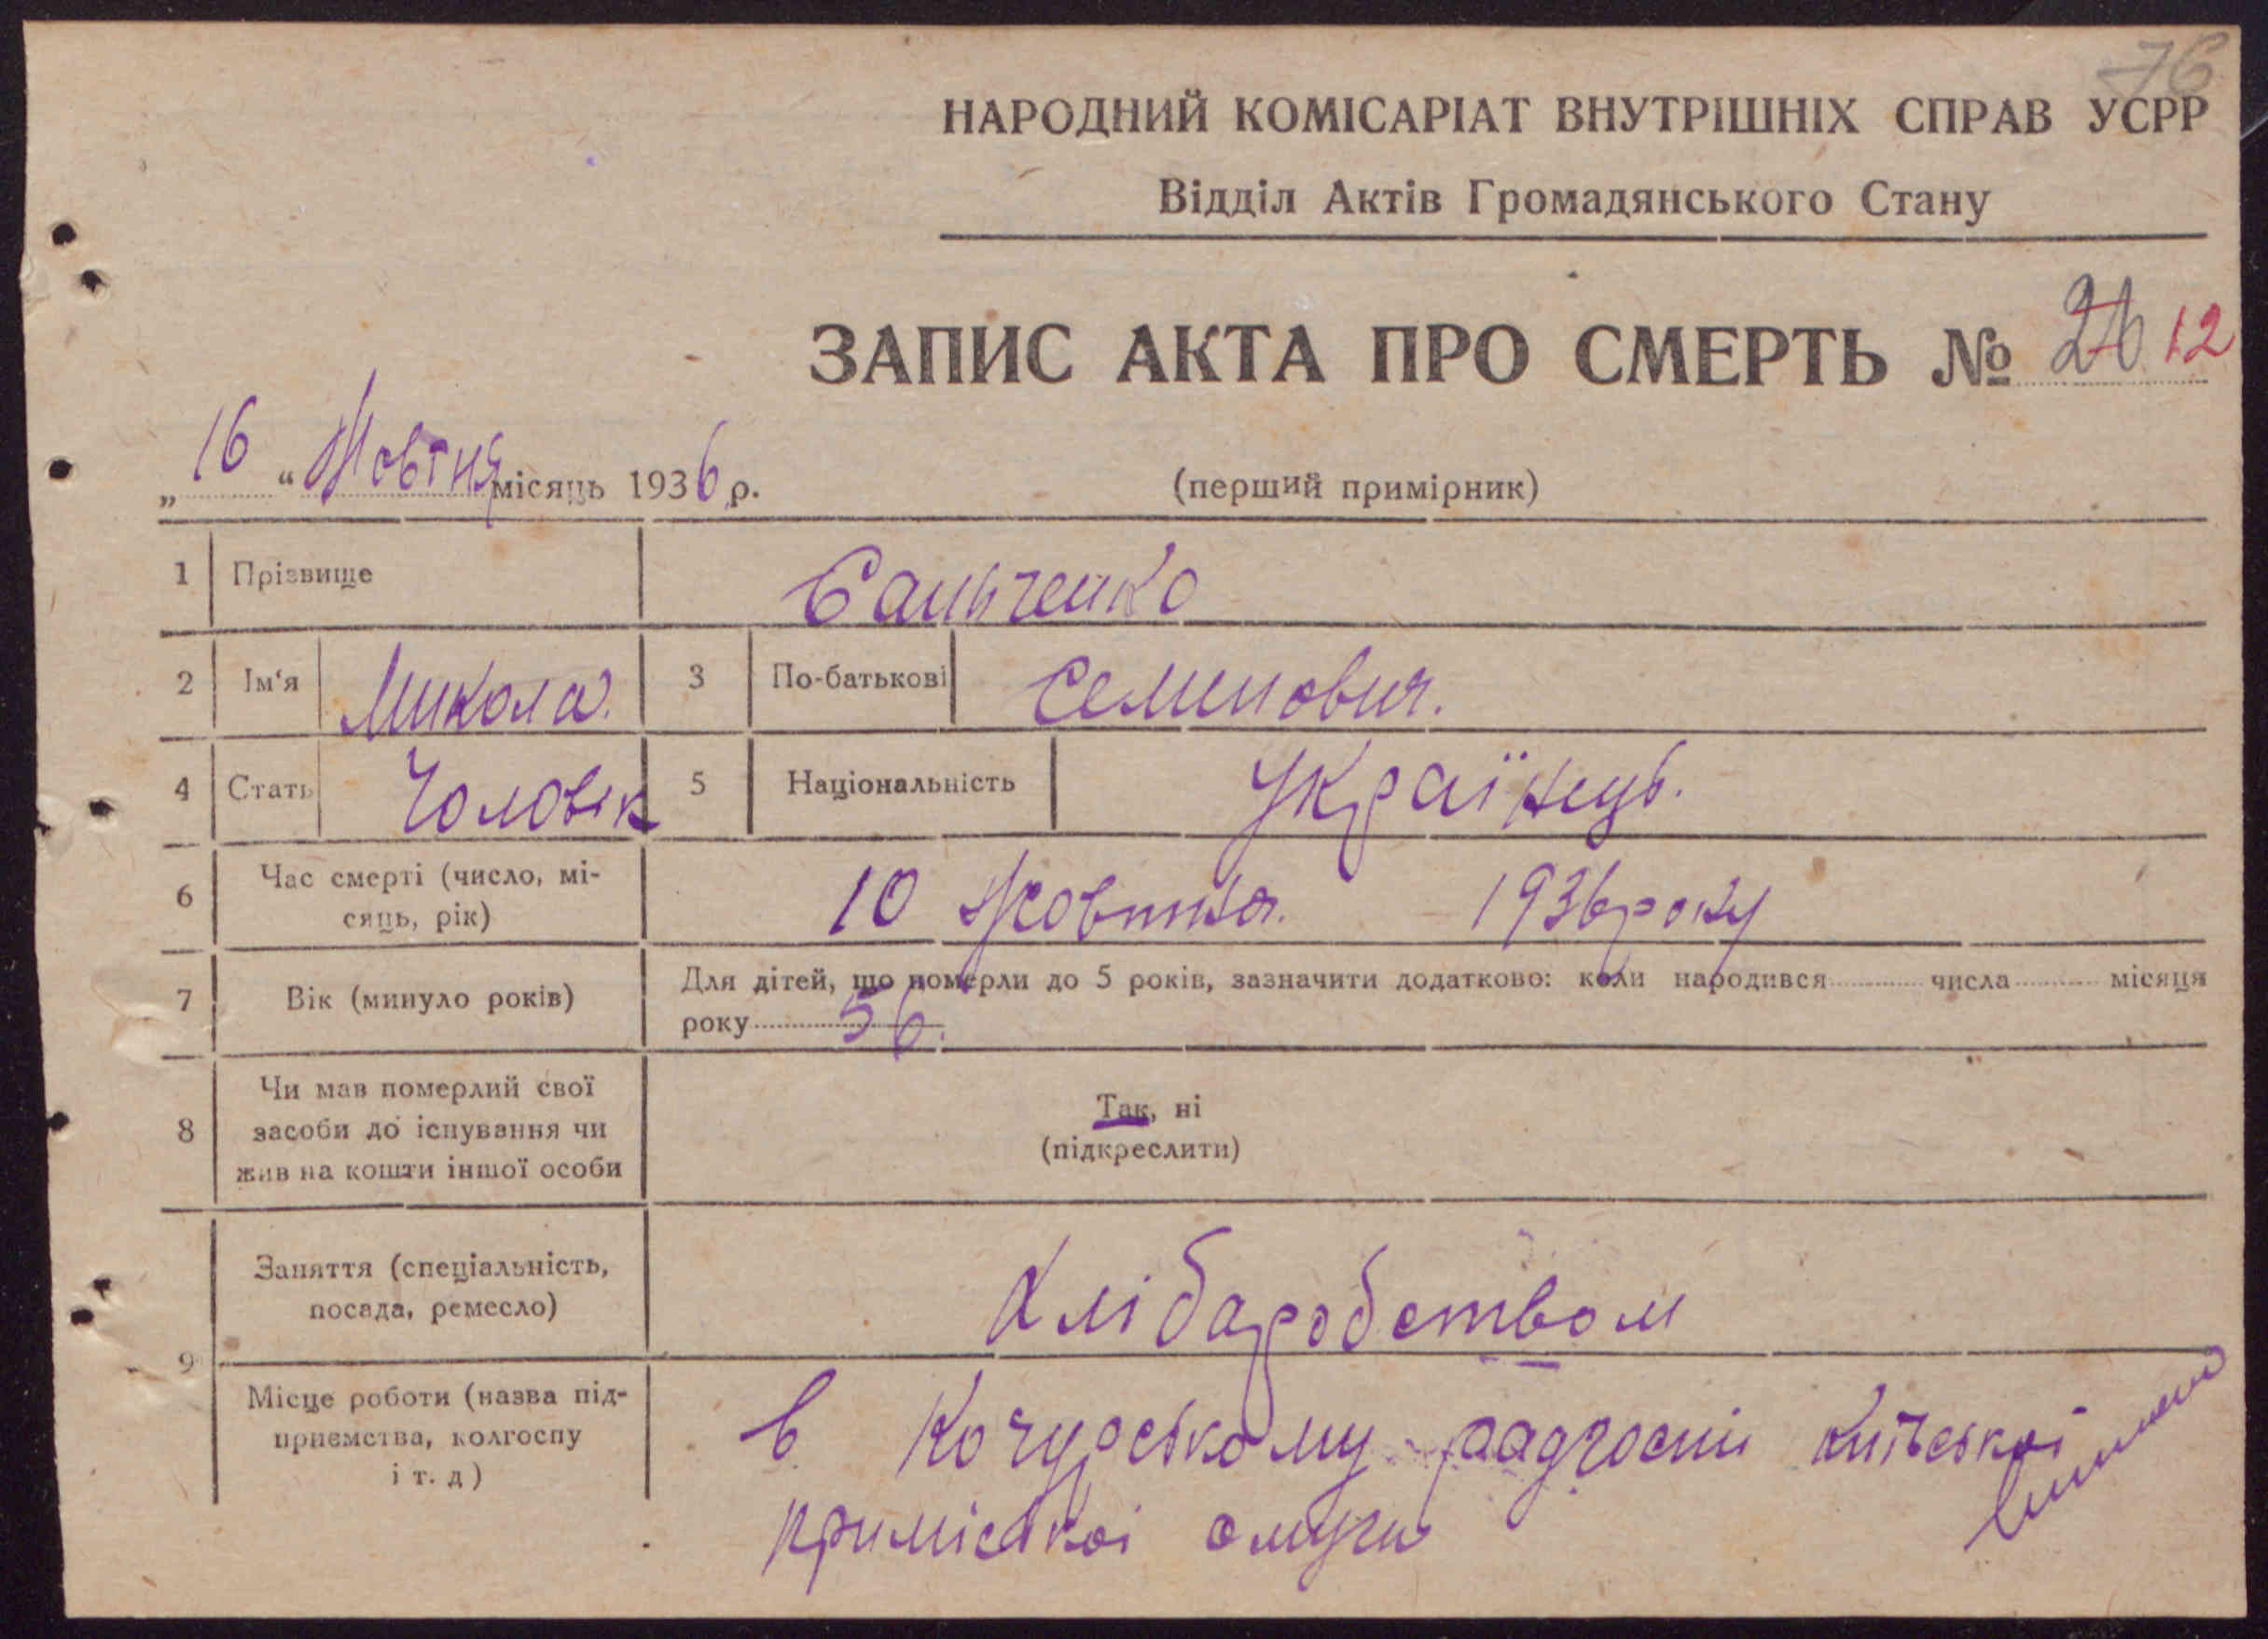 76
НАРОДНИЙ КОМІСАРІАТ ВНУТРІШНІХ СПРАВ УСРР
Відділ Актів Громадянського Стану
ЗАПИС АКТА ПРО СМЕРТЬ № 12
„16“ Жовтня місяць 1936 р. (перший примірник)
1 Прізвище
2 Ім'я Микола. 3 По-батькові Семенович.
4 Стать Чоловік 5 Національність Українець.
6 Час смерті (число, мі-
сяць, рік) 10 жовтня. 1936 року
7 Вік (минуло років) Для дітей, що померли до 5 років, зазначити додатково: коли народився числа місяця
року 56.
8 Чи мав померлий свої
засоби до існування чи
жив на кошти іншої особи
Так, ні
(підкреслити)
9 Заняття (спеціальність,
посада, ремесло) Хлібаробством
Місце роботи (назва під-
приємства, колгоспу
і т. д)
в радгоспі Київської
приміської смуги